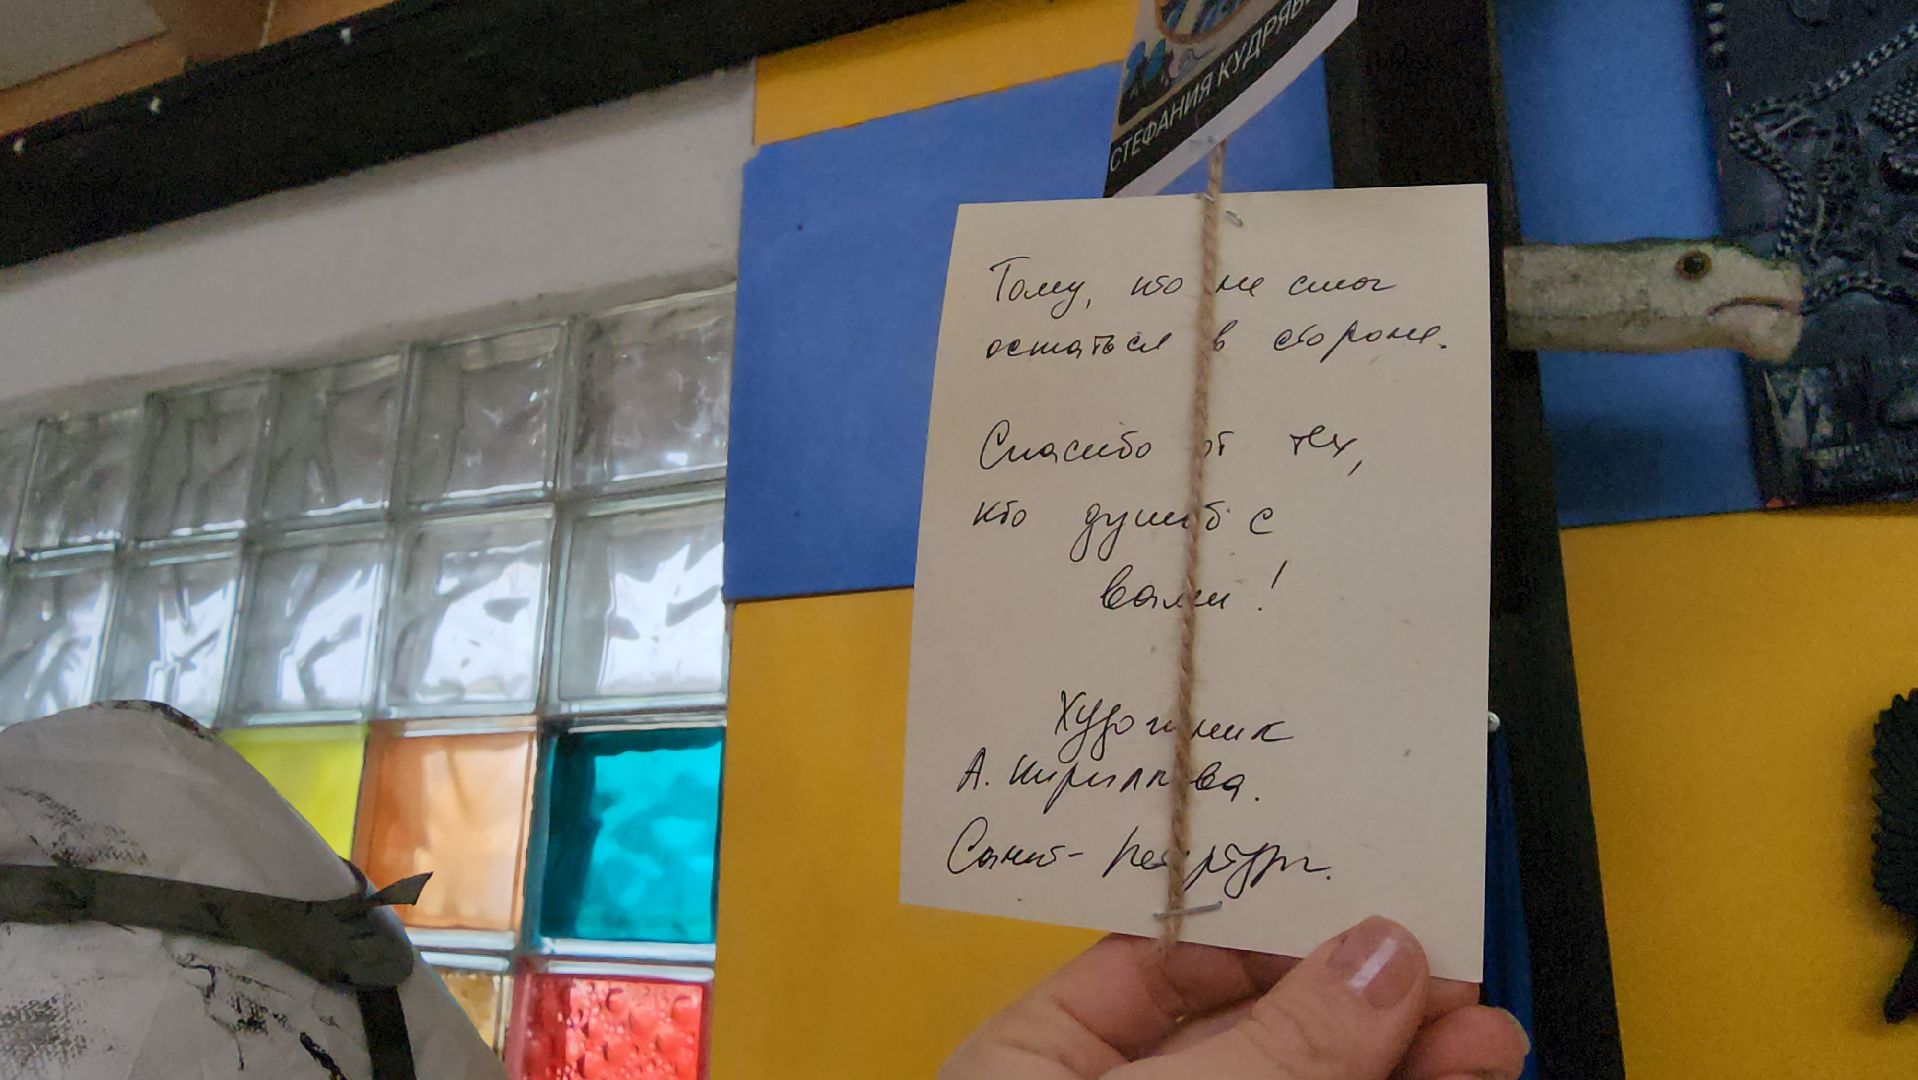 СТЕФАНИЯ
Тому, кто не смог
остаться в стороне.
Спасибо от тех,
кто душой с
вами!
Художник
А. Кириллова.
Санкт-Петербург.